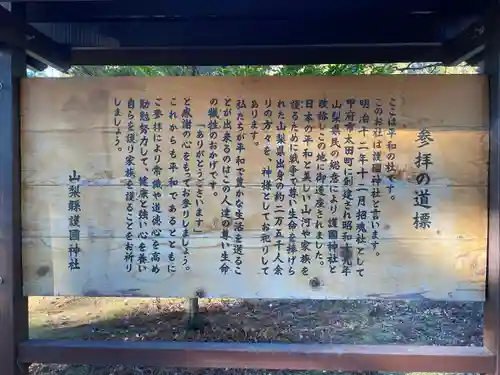 参拝の道標
ここは平和の社です。
このお社は護國神社と言います。
明治十二年十二月招魂社として
甲府市太田町に創建され昭和十九年
山梨県民の総意により護国神社と
改称しこの地に御遷座されました。
日本の平和と美しい山河や家族を
護るために戦争で尊い生命を捧げら
れた山梨県出身の約二万五千人余
りの方々を、神様としてお祀りして
あります。
私たちが平和で豊かな生活を送るこ
とが出来るのはこの人達の尊い生命
の犠牲のおかげです。
"ありがとうございます"
と感謝の心をもってお参りしましょう。
これからも平和であるとともに
ご参拝により常識や道徳心を高め
勤勉努力して、健康と強い心を養い
自らを護り家族を護ることをお祈り
しましょう。
山梨縣護國神社